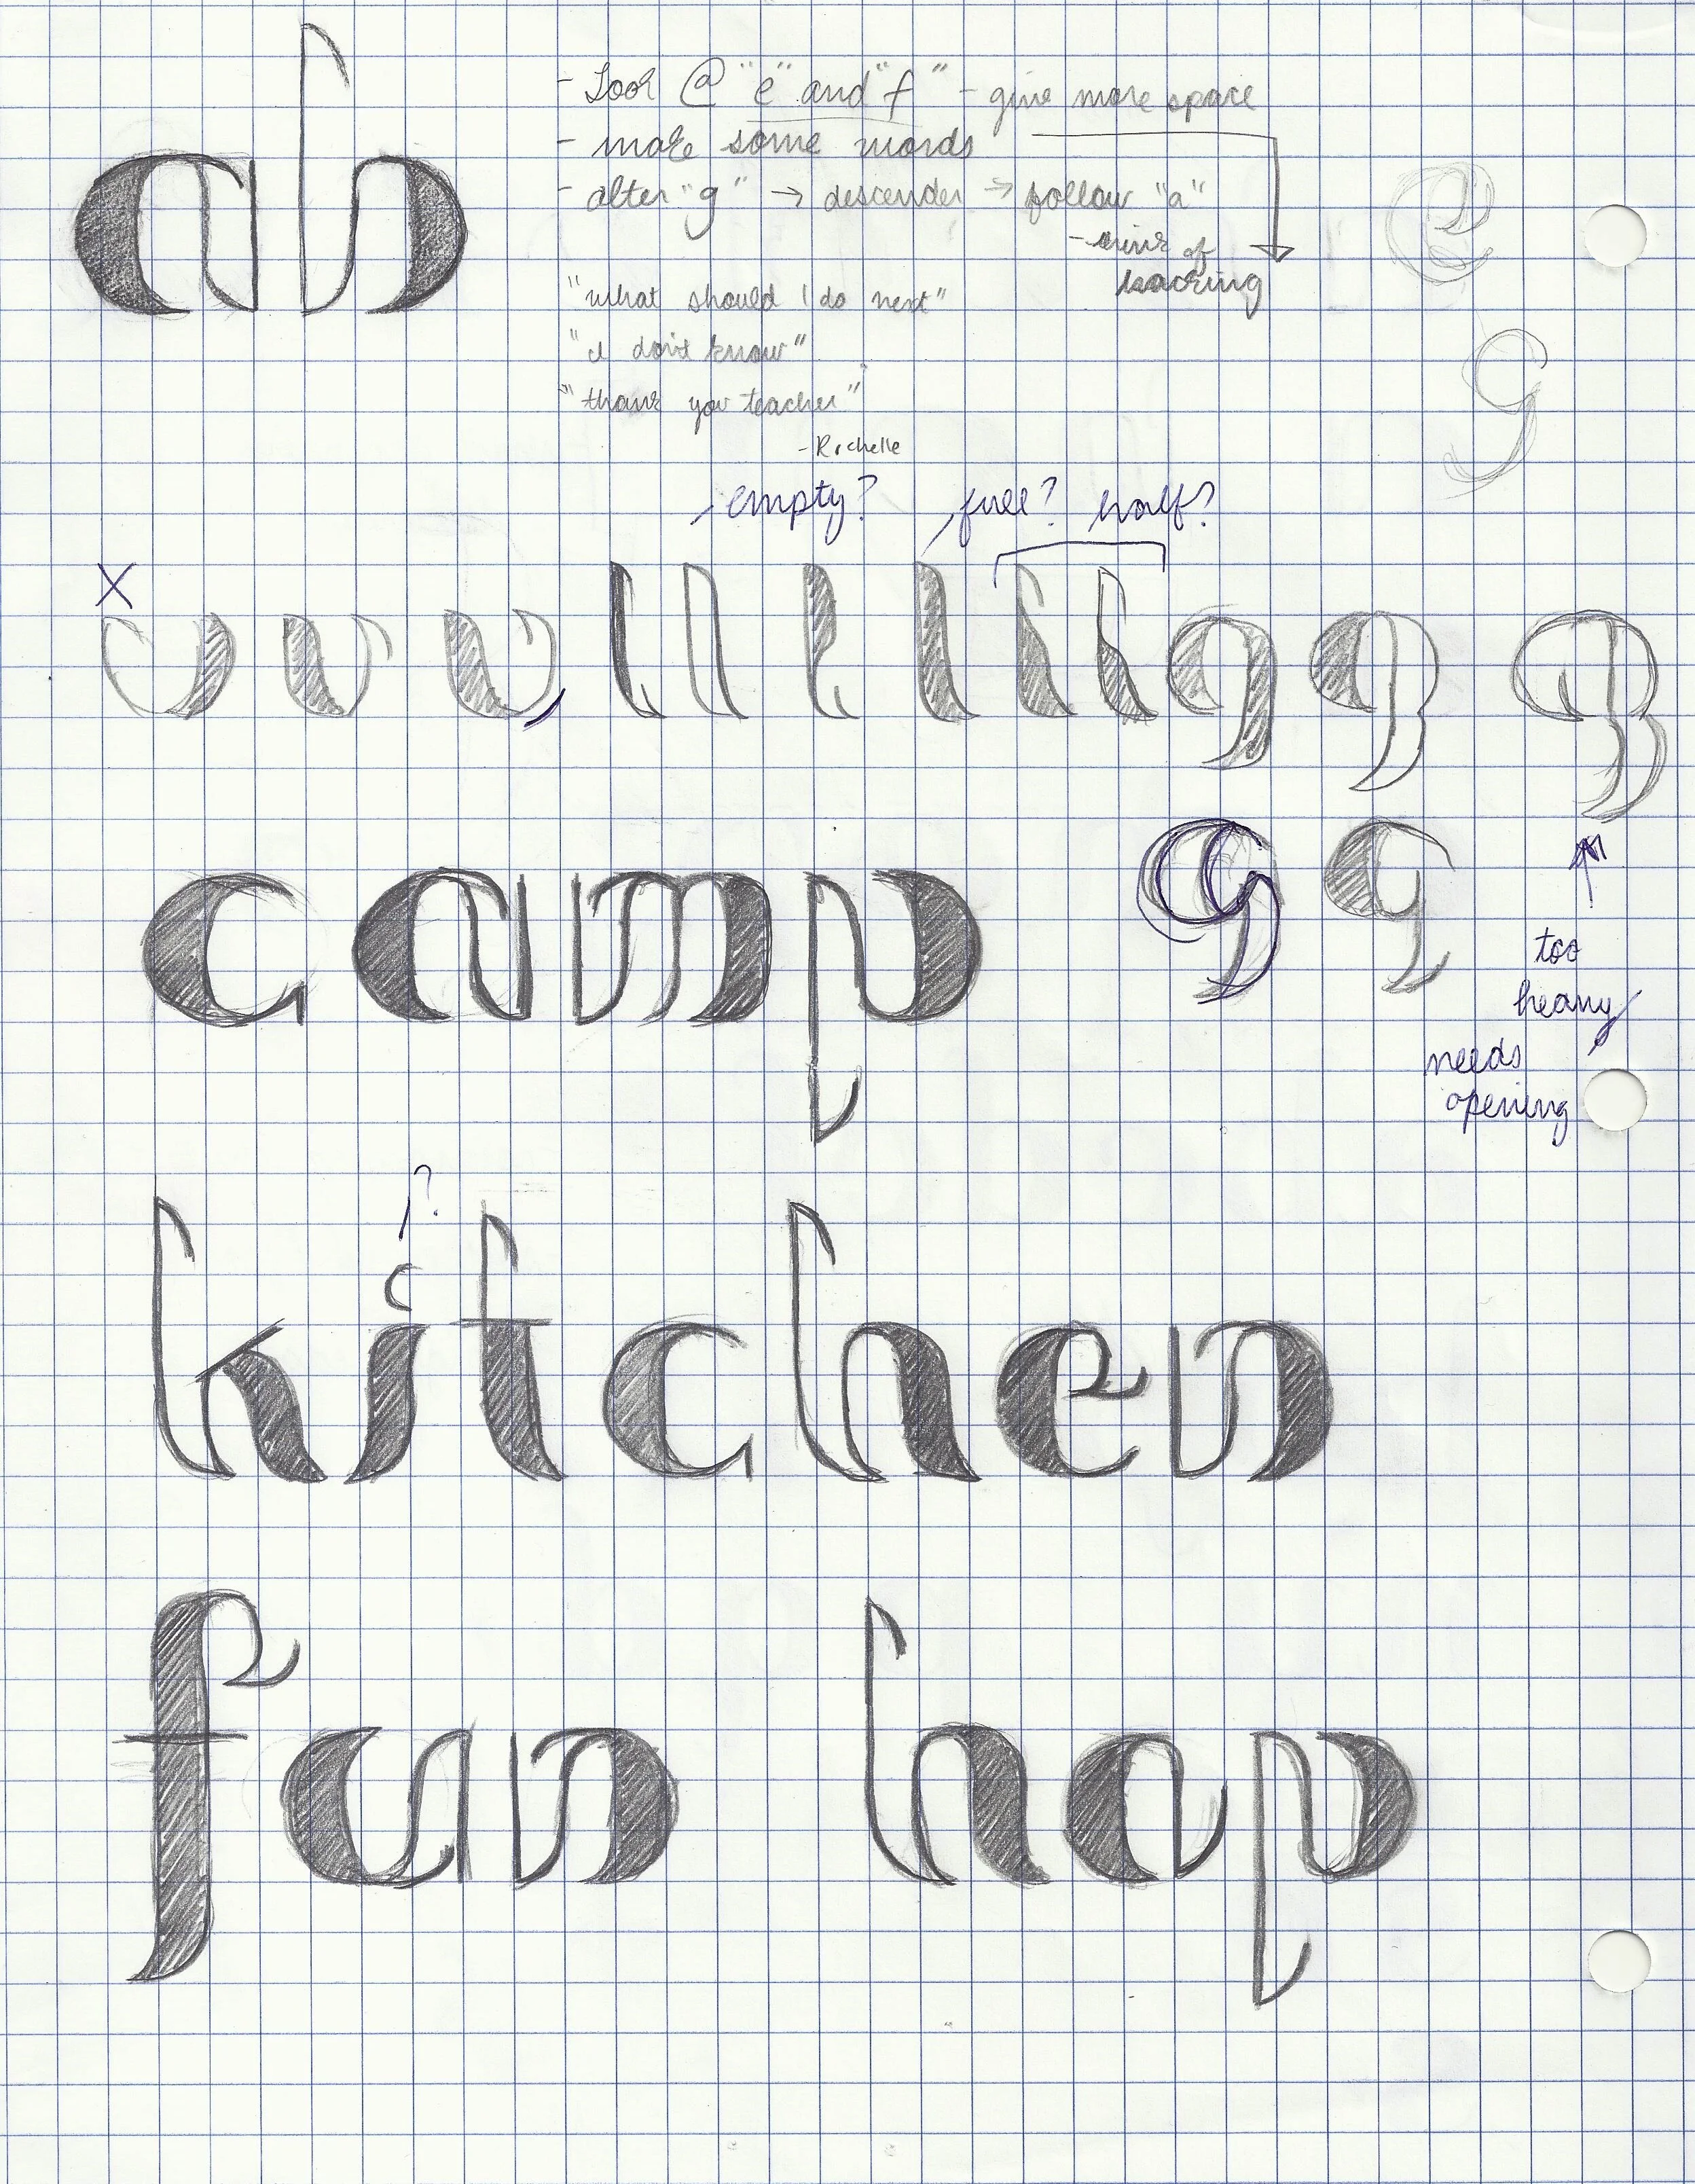 ab
- Look @ "e" and "f" - give more space
- make some words
- alter "g" → descender → follow "a"
- think of
kerning
"what should I do next"
"I don't know"
"thank you teacher"
- Rochelle
e
g
empty? full? half?
X
v v v l l l l l l g g g
camp
g g
too
heavy
needs
opening
?
kitchen
fun hap